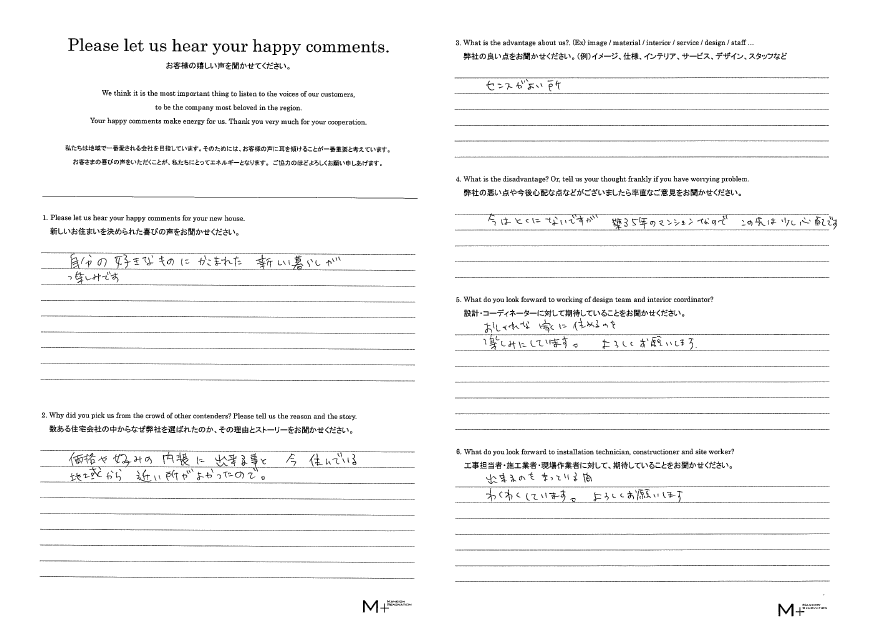 Please let us hear your happy comments.
お客様の嬉しい声を聞かせてください。
We think it is the most important thing to listen to the voices of our customers,
to be the company most beloved in the region.
Your happy comments make energy for us. Thank you very much for your cooperation.
私たちは地域で一番愛される会社を目指しています。そのためには、お客様の声に耳を傾けることが一番重要と考えています。
お客さまの喜びの声をいただくことが、私たちにとってエネルギーとなります。ご協力のほどよろしくお願い申しあげます。
1. Please let us hear your happy comments for your new house.
新しいお住まいを決められた喜びの声をお聞かせください。
自分の好きなものにかこまれた 新しい暮らしが
楽しみです
2. Why did you pick us from the crowd of other contenders? Please tell us the reason and the story.
数ある住宅会社の中からなぜ弊社を選ばれたのか、その理由とストーリーをお聞かせください。
価格や好みの内張に出来る事と 今 住んでいる
地域から 近い所がよかったので。
M+ MANSION RENOVATION
3. What is the advantage about us?. (Ex) image / material / interior / service / design / staff ...
弊社の良い点をお聞かせください。(例)イメージ、仕様、インテリア、サービス、デザイン、スタッフなど
センスがよい所
4. What is the disadvantage? Or, tell us your thought frankly if you have worrying problem.
弊社の悪い点や今後心配な点などがございましたら率直なご意見をお聞かせください。
今はとくにないですが 築35年のマンションなので この先は少し心配です
5. What do you look forward to working of design team and interior coordinator?
設計・コーディネーターに対して期待していることをお聞かせください。
おしゃれな 家に 住めるのを
楽しみにしています。 よろしくお願いします
6. What do you look forward to installation technician, constructioner and site worker?
工事担当者・施工業者・現場作業者に対して、期待していることをお聞かせください。
出来るのをまっている間
わくわくしています。 よろしくお願いします
M+ MANSION RENOVATION